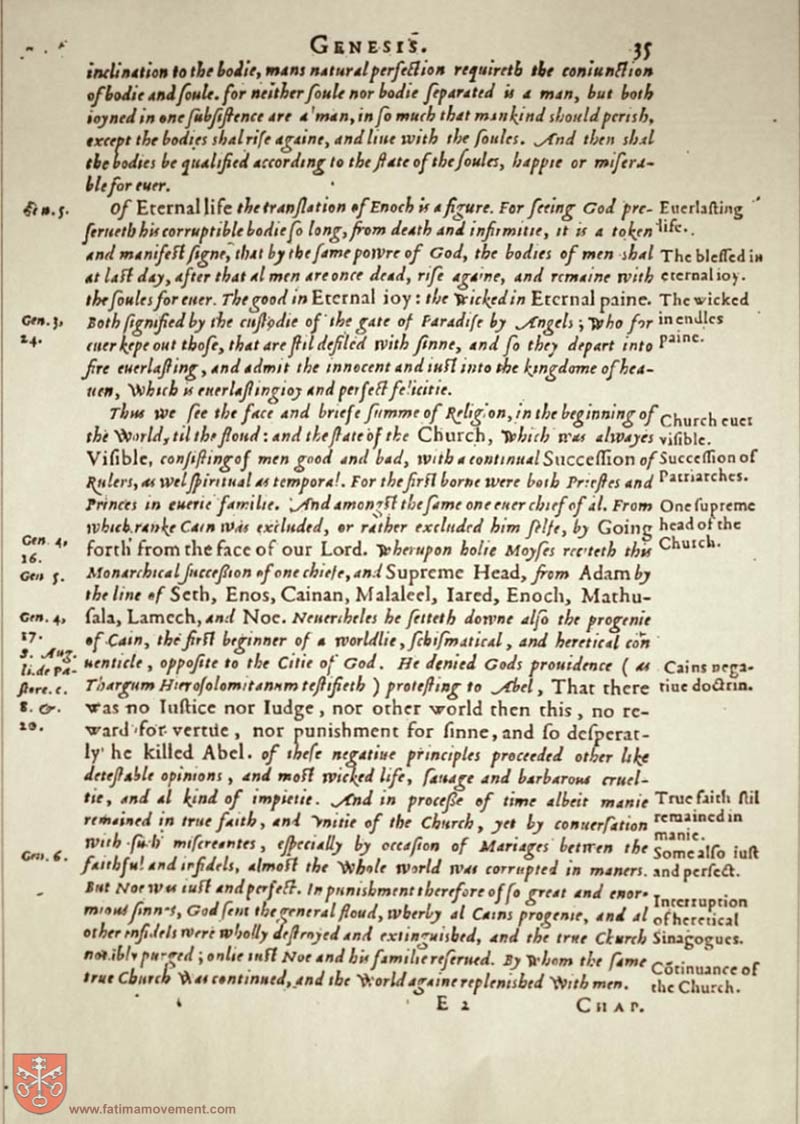 GENESIS. 35
inclination to the bodie, mans natural perfection requireth the coniunction
of bodie and ſoule. for neither ſoule nor bodie ſeparated is a man, but both
ioyned in one ſubſiſtence are a man, in ſo much that mankind should perish,
except the bodies shal riſe againe, and liue with the ſoules. And then shal
the bodies be qualified according to the ſtate of the ſoules, happie or miſera-
ble for euer.
Of Eternal life the tranſlation of Enoch is a figure. For ſeeing God pre-
ſerueth his corruptible bodie ſo long, from death and infirmitie, it is a token
and manifeſt ſigne, that by the ſame powre of God, the bodies of men shal
at laſt day, after that al men are once dead, riſe againe, and remaine with
the ſoules for euer. The good in Eternal ioy: the wicked in Eternal paine.
Both ſignified by the cuſtodie of the gate of Paradiſe by Angels; who for
euer kepe out thoſe, that are ſtil defiled with ſinne, and ſo they depart into
fire euerlaſting, and admit the innocent and iuſt into the kingdome of hea-
uen, which is euerlaſting ioy and perfect felicitie.
Thus we ſee the face and briefe ſumme of Religion, in the beginning of
the world, til the floud: and the ſtate of the Church, which was alwayes
Viſible, conſiſting of men good and bad, with a continual Succeſſion of
Rulers, as wel ſpiritual as temporal. For the firſt borne were both Prieſtes and
Princes in euerie familie. And amongſt the ſame one euer chief of al. From
which ranke Cain was excluded, or rather excluded him ſelfe, by Going
forth from the face of our Lord. Wherupon holie Moyſes reciteth this
Monarchical ſucceſſion of one chiefe, and Supreme Head, from Adam by
the line of Seth, Enos, Cainan, Malaleel, Iared, Enoch, Mathu-
ſala, Lamech, and Noe. Neuertheles he ſetteth downe alſo the progenie
of Cain, the firſt beginner of a worldlie, ſchiſmatical, and heretical con
uenticle, oppoſite to the Citie of God. He denied Gods prouidence (as
Thargum Hieroſolomitanum teſtifieth) proteſting to Abel, That there
was no Iuſtice nor Iudge, nor other world then this, no re-
ward for vertue, nor punishment for ſinne, and ſo deſperat-
ly he killed Abel. of theſe negatiue principles proceeded other like
deteſtable opinions, and moſt wicked life, ſauage and barbarous cruel-
tie, and al kind of impietie. And in proceſſe of time albeit manie
remained in true faith, and vnitie of the Church, yet by conuerſation
with ſuch miſcreantes, eſpecially by occaſion of Mariages betwen the
faithful and infidels, almoſt the whole world was corrupted in maners.
But Noe was iuſt and perfect. In punishment therefore of ſo great and enor-
mious ſinnes, God ſent the general floud, wherby al Cains progenie, and al
other infidels were wholly deſtroyed and extinguished, and the true Church
notably purged; onlie iuſt Noe and his familie reſerued. By whom the ſame
true Church was continued, and the world againe replenished with men.
E 2 CHAP.
Gen. 5.
Gen. 3,
24.
Gen 4,
16.
Gen 5.
Gen. 4,
17.
S. Aug.
li. de Pa-
ſtore. c.
8. &.
20.
Gen. 6.
Euerlaſting
life.
The bleſſed in
eternal ioy.
The wicked
in endles
paine.
Church euer
viſible.
Succeſſion of
Patriarches.
One ſupreme
head of the
Church.
Cains nega-
tiue doctrin.
True faith ſtil
remained in
manie.
Some alſo iuſt
and perfect.
Interruption
of heretical
Sinagogues.
Cõtinuance of
the Church.
www.fatimamovement.com